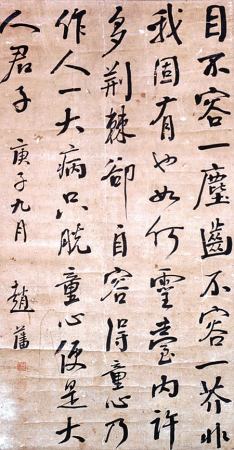 目不容一塵齒不容一芥非
我固有也如何靈臺内許
多荆棘卻自容得童心乃
作人一大病只脱童心便是大
人君子
庚子九月
趙藩